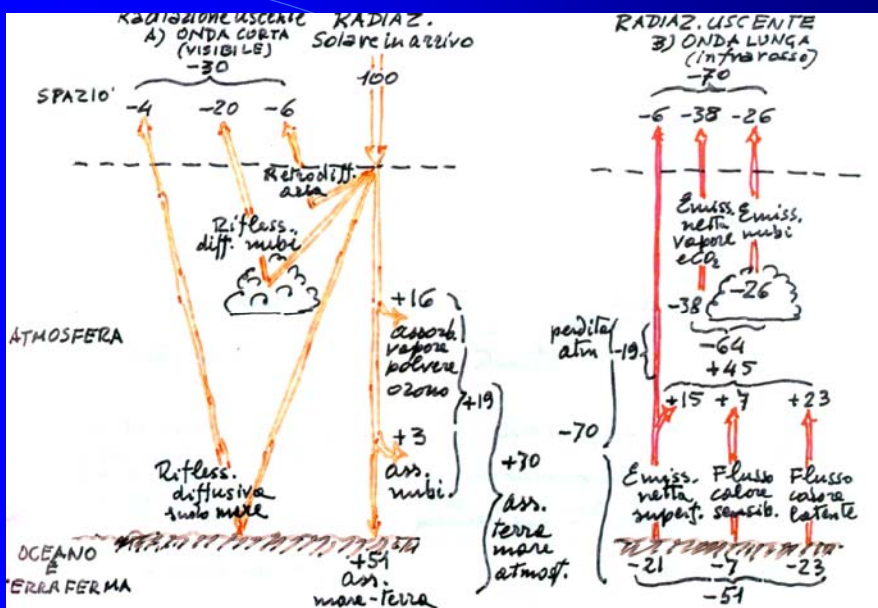 Radiazione uscente
A) ONDA CORTA
(VISIBILE)
-30
RADIAZ.
Solare in arrivo
100
RADIAZ. USCENTE
B) ONDA LUNGA
(infrarosso)
-70
SPAZIO
-4 -20 -6
-6 -38 -26
Retrodiff.
aria
Rifless.
diff. nubi
Emiss.
netta
vapore
e CO2
Emiss.
nubi
-38
-26
-64
+45
ATMOSFERA
+16
assorb.
vapore
polvere
ozono
+3
ass.
nubi
+19
+30
ass.
terra
mare
atmosf.
perdita
atm
-19
-70
+15 +7 +23
Rifless.
diffusiva
suolo mare
Emiss.
netta
superf.
Flusso
calore
sensib.
Flusso
calore
latente
OCEANO
E
TERRAFERMA
+51
ass.
mare-terra
-21 -7 -23
-51